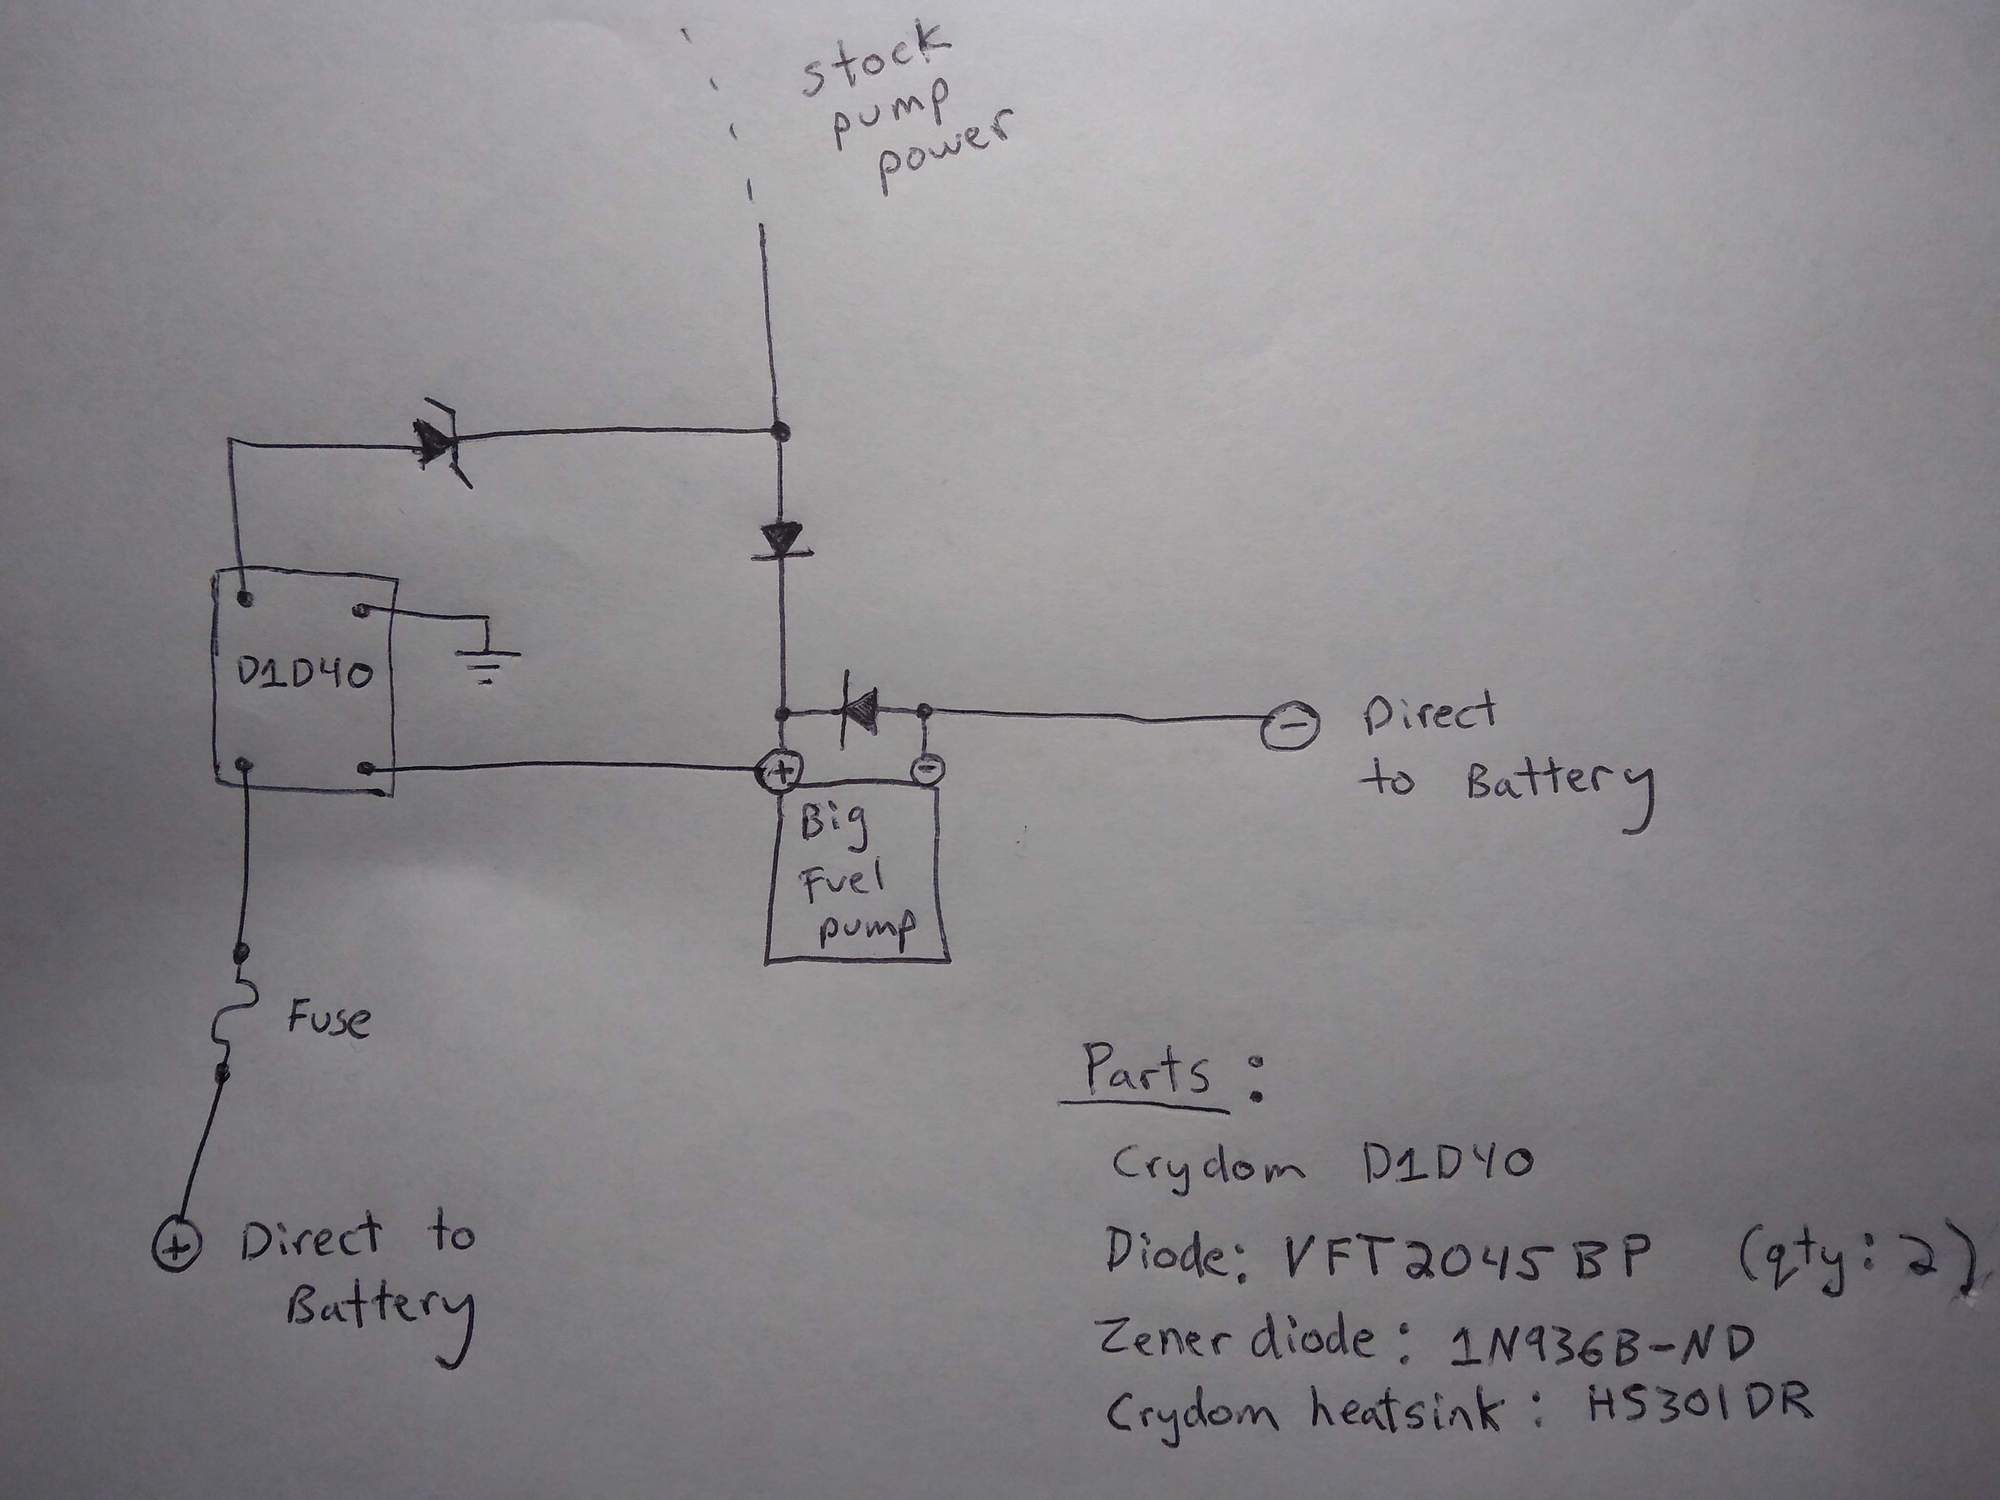 stock
pump
power
D1D40
+
-
Direct
to Battery
+
-
Big
Fuel
pump
Fuse
+
Direct to
Battery
Parts:
Crydom D1D40
Diode: VFT2045BP (qty: 2)
Zener diode: 1N936B-ND
Crydom heatsink: HS301DR